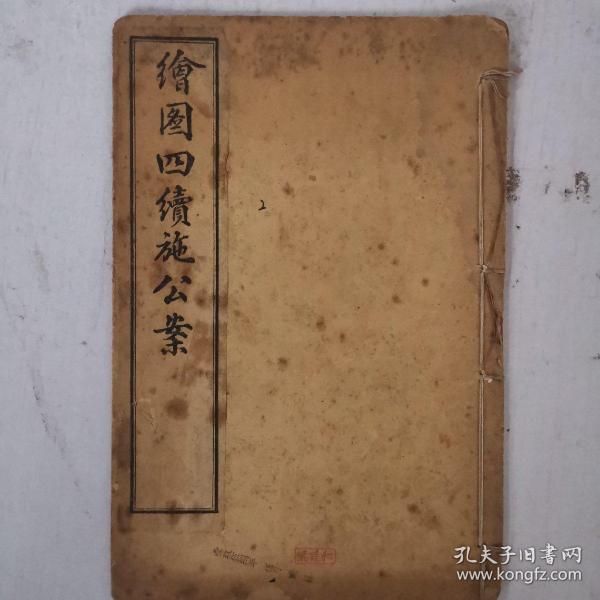 繪图四續施公案
2
孔夫子旧书网
www.kongfz.com